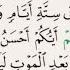 سِتَّةِ أَيَّامٍ وَ
أَيُّكُمْ أَحْسَنُ
بَعْدِ الْمَوْتِ لَيَ